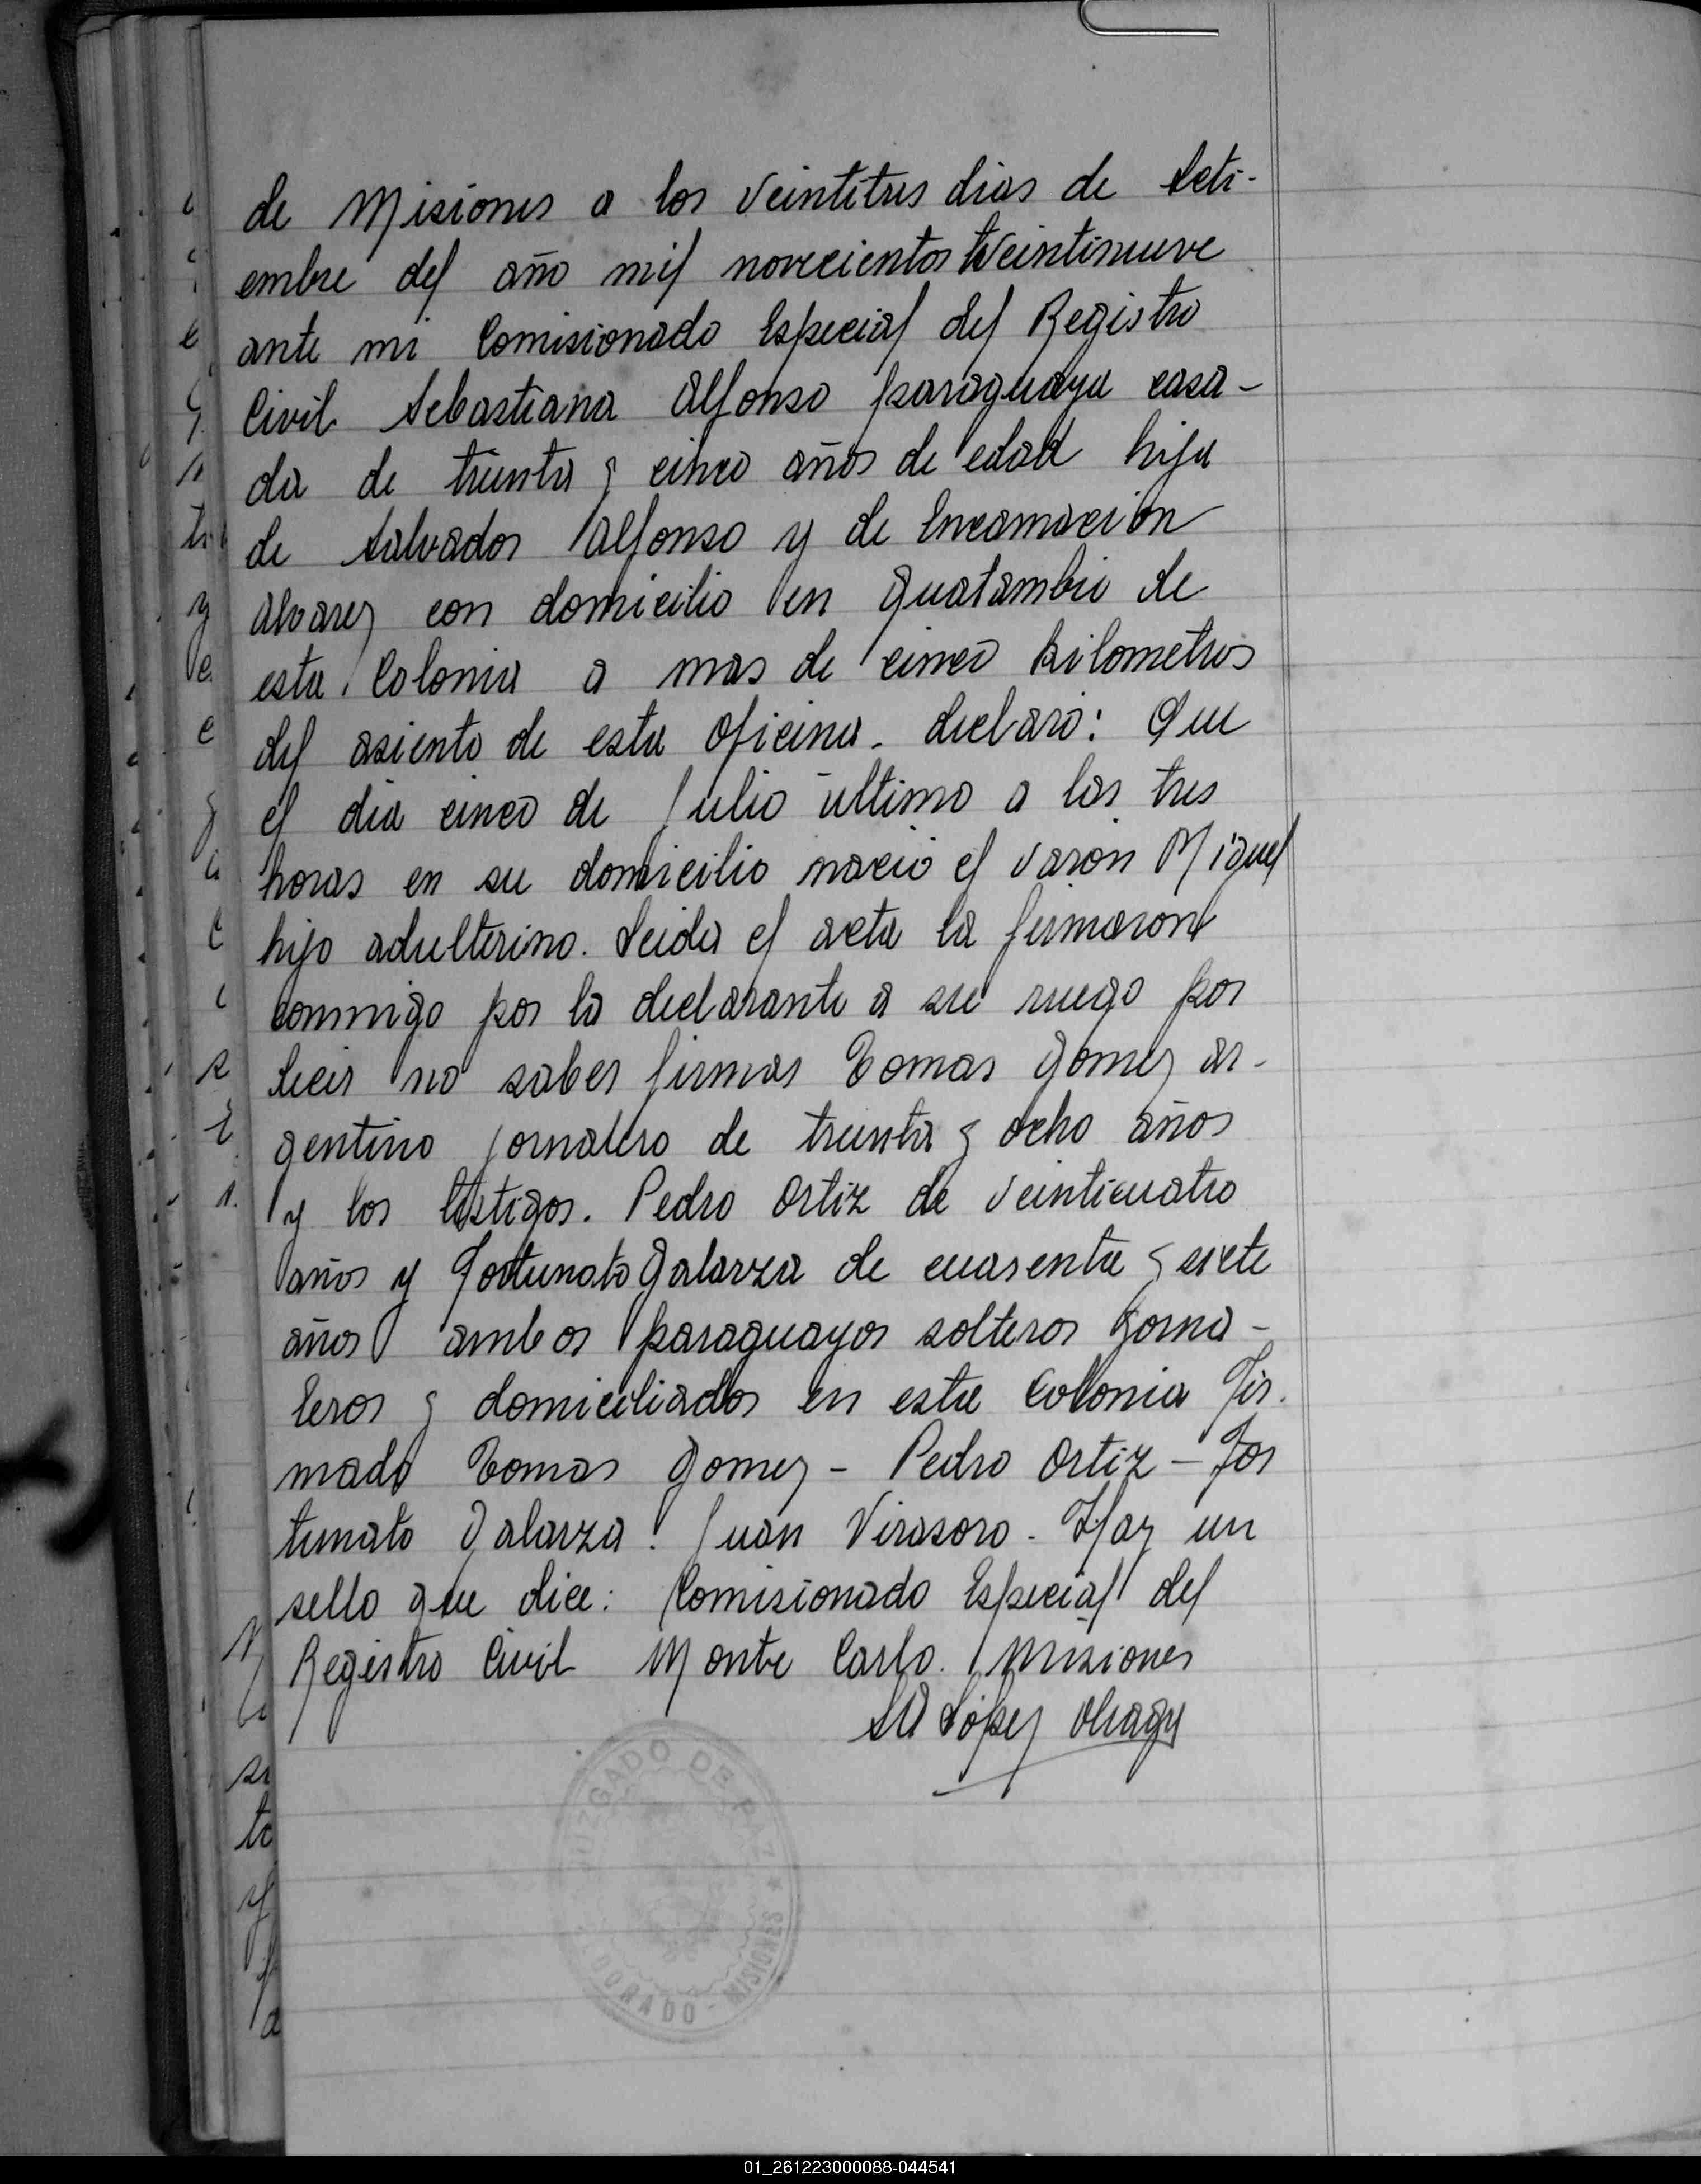 de Misiones a los veintitres dias de Seti-
embre del año mil novecientos veintinueve
ante mi Comisionado Especial del Registro
Civil Sebastiana Alfonso paraguaya casa-
da de treinta y cinco años de edad hija
de Salvador Alfonso y de Encarnación
Alvarez con domicilio en Guatambú de
esta Colonia a mas de cinco kilometros
del asiento de esta Oficina. declaró: Que
el dia cinco de Julio último a las tres
horas en su domicilio nació el varón Miguel
hijo adulterino. Leida el acta la firmaron
conmigo por la declarante a su ruego por
decir no saber firmar Tomas Gomez ar-
gentino jornalero de treinta y ocho años
y los testigos. Pedro Ortiz de veinticuatro
años y Fortunato Galarza de cuarenta y siete
años ambos paraguayos solteros jorna-
leros y domiciliados en esta Colonia Fir.
mado Tomas Gomez - Pedro Ortiz - For
tunato Galarza. Juan Virasoro. Hay un
sello que dice: Comisionado Especial del
Registro Civil Monte Carlo. Misiones
López
JUZGADO DE PAZ
DORADO - MISIONES
01_261223000088-044541